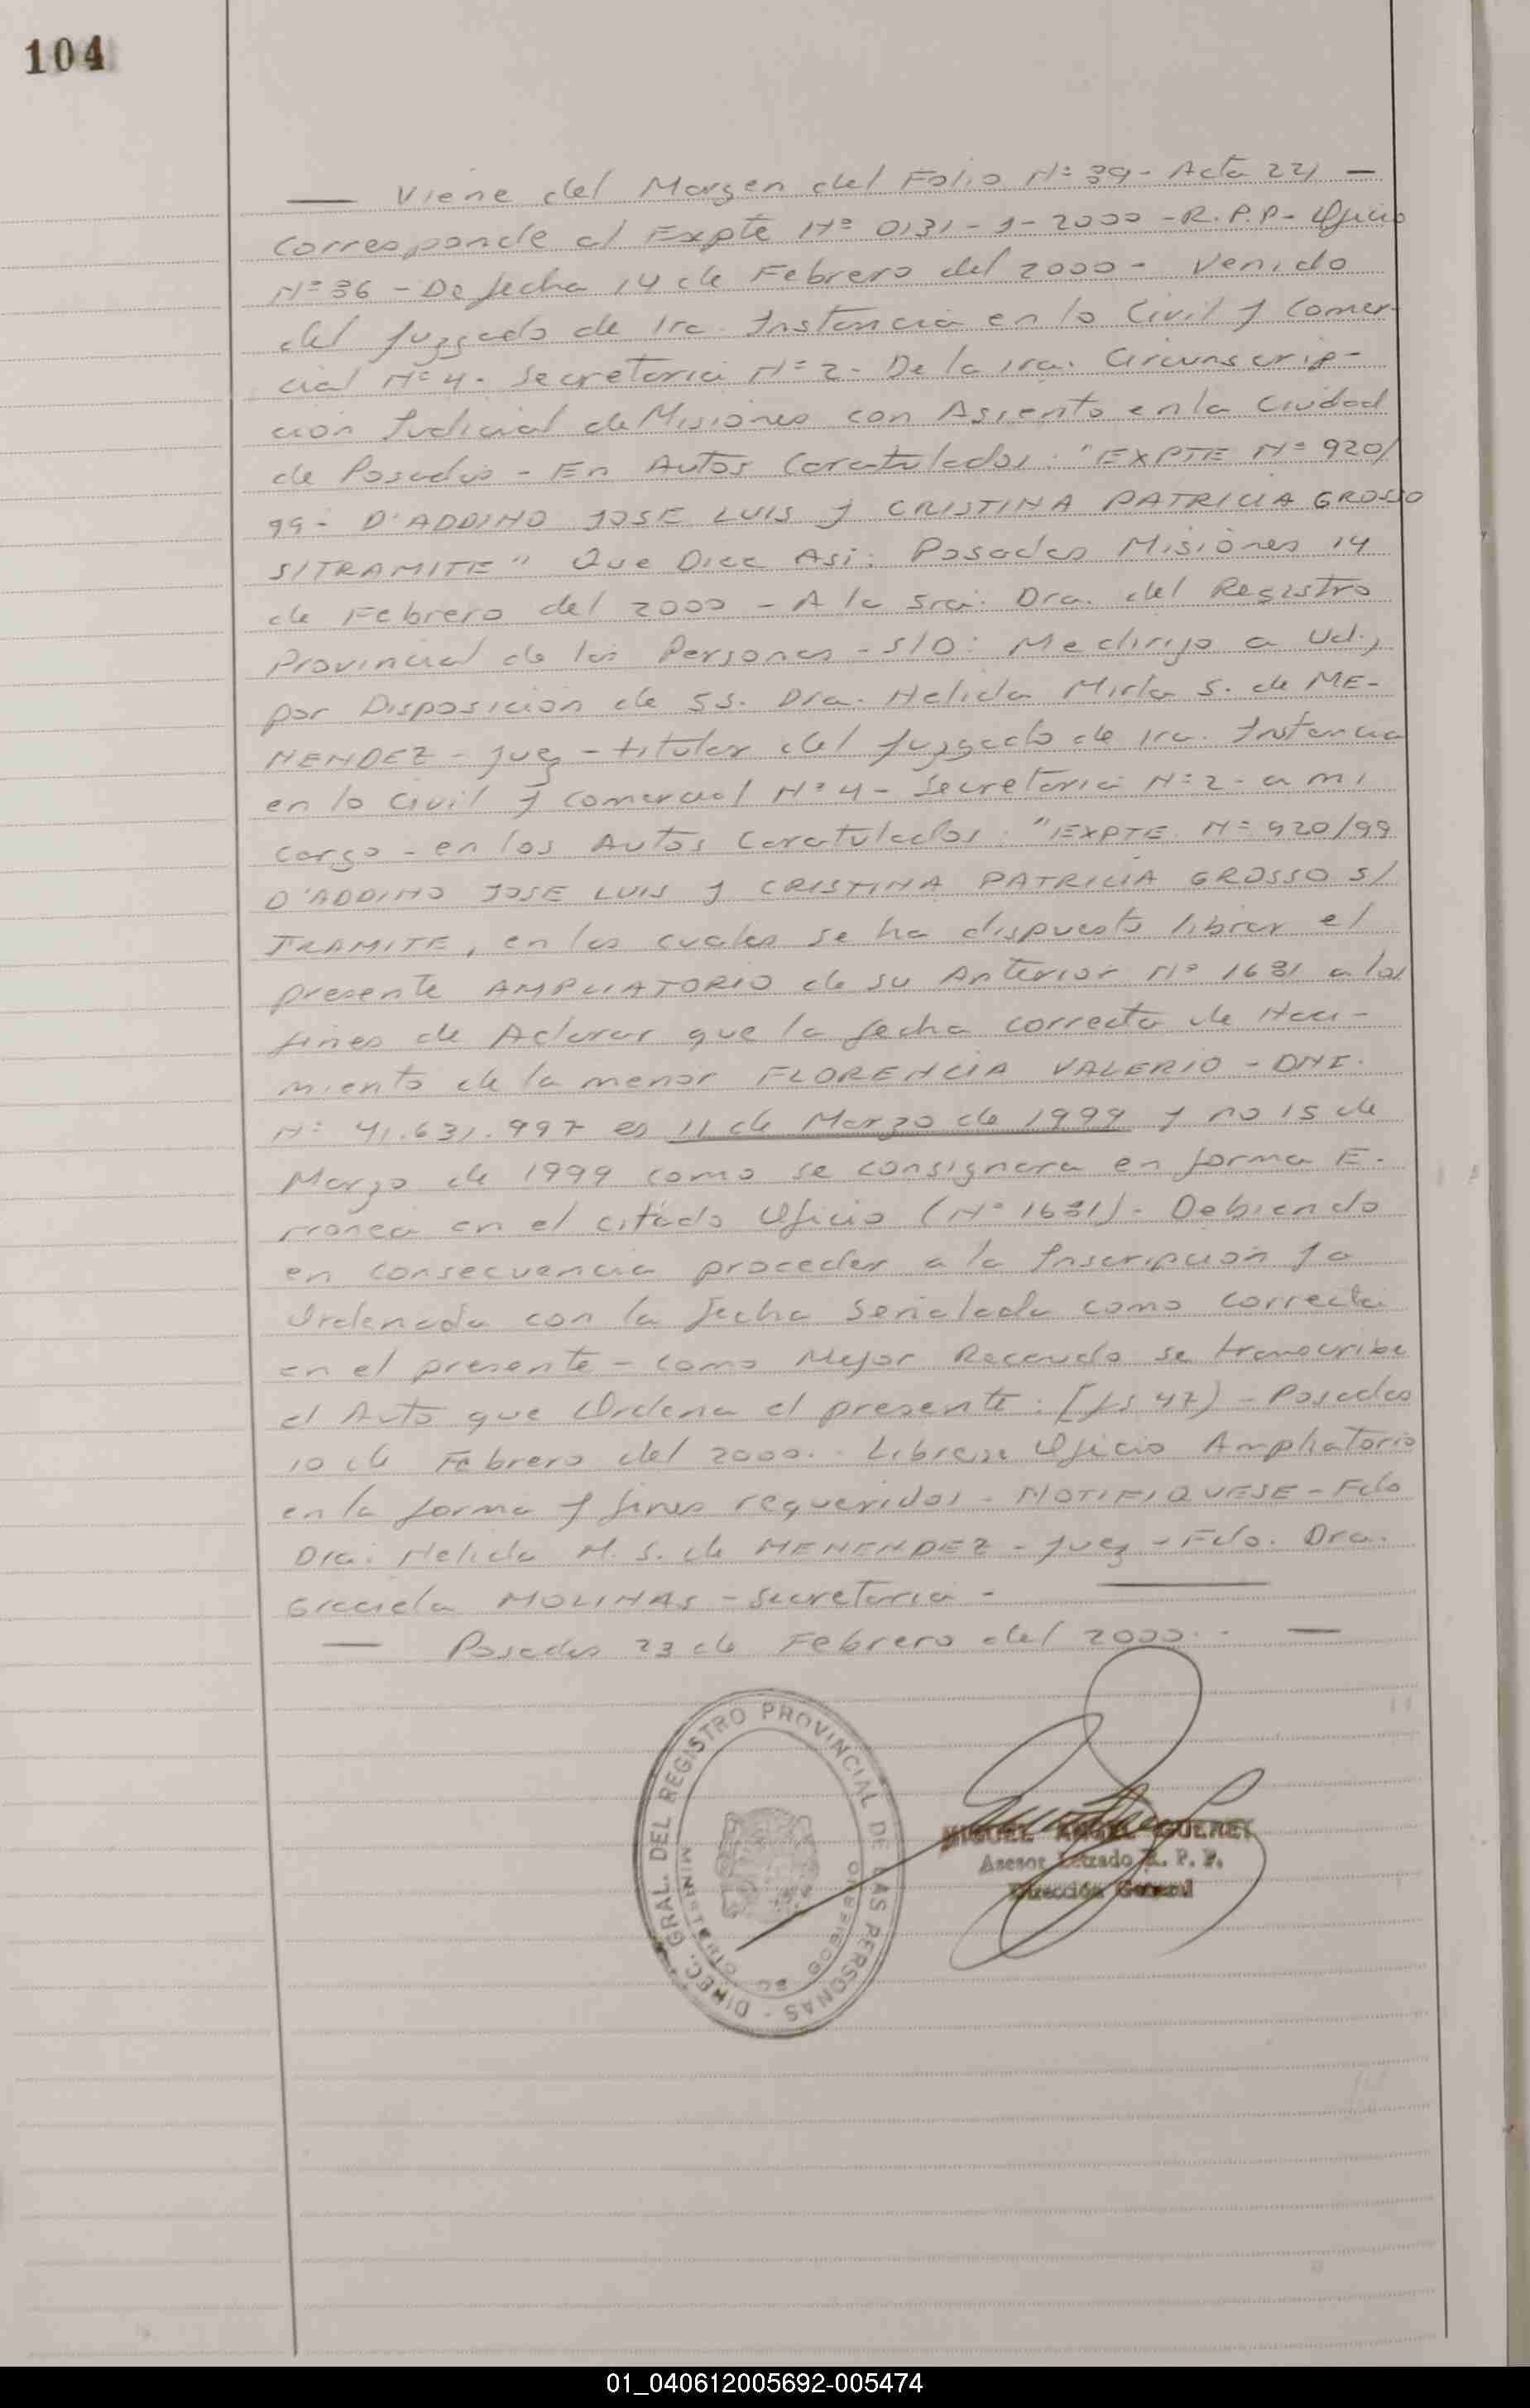 104
— Viene del Margen del Folio Nº 39 - Acta 221 —
corresponde al Expte Nº 0131-J-2000 - R.P.P - Oficio
Nº 36 - De fecha 14 de Febrero del 2000 - Venido
del Juzgado de 1ra. Instancia en lo Civil y Comer-
cial Nº 4. Secretaria Nº 2. De la 1ra. Circunscrip-
ción Judicial de Misiones con Asiento en la Ciudad
de Posadas - En Autos Caratulados: "EXPTE Nº 920/
99- D'ADDINO JOSE LUIS y CRISTINA PATRICIA GROSSO
S/TRAMITE" Que Dice Asi: Posadas Misiones 14
de Febrero del 2000 - A la Sra. Dra. del Registro
Provincial de las Personas - S/D: Me dirijo a Ud.,
por Disposición de SS. Dra. Helida Mirta S. de ME-
NENDEZ - Juez - titular del Juzgado de 1ra. Instancia
en lo Civil y Comercial Nº 4 - Secretaria Nº 2 - a mi
cargo - en los Autos Caratulados: "EXPTE. Nº 920/99
D'ADDINO JOSE LUIS y CRISTINA PATRICIA GROSSO S/
TRAMITE, en los cuales se ha dispuesto librar el
presente AMPLIATORIO de su Anterior Nº 1631 a los
fines de Aclarar que la fecha correcta de Naci-
miento de la menor FLORENCIA VALERIO - DNI.
Nº 41.631.997 es 11 de Marzo de 1999 y no 15 de
Marzo de 1999 como se consignara en forma E-
rronea en el citado Oficio (Nº 1631). Debiendo
en consecuencia proceder a la Inscripción ya
Ordenada con la fecha Señalada como correcta
en el presente - como Mejor Recaudo se transcribe
el Auto que Ordena el presente: [fs 47) - Posadas
10 de Febrero del 2000. - Librese Oficio Ampliatorio
en la forma y fines requeridos - NOTIFIQUESE - Fdo
Dra. Helida M. S. de MENENDEZ - Juez - Fdo. Dra.
Graciela MOLINAS - Secretaria -
— Posadas 23 de Febrero del 2000. - —
DIREC. GRAL. DEL REGISTRO PROVINCIAL DE LAS PERSONAS -
MINISTERIO DE GOBIERNO
MIGUEL ANGEL GUERET
Asesor Letrado R. P. P.
Dirección General
01_040612005692-005474